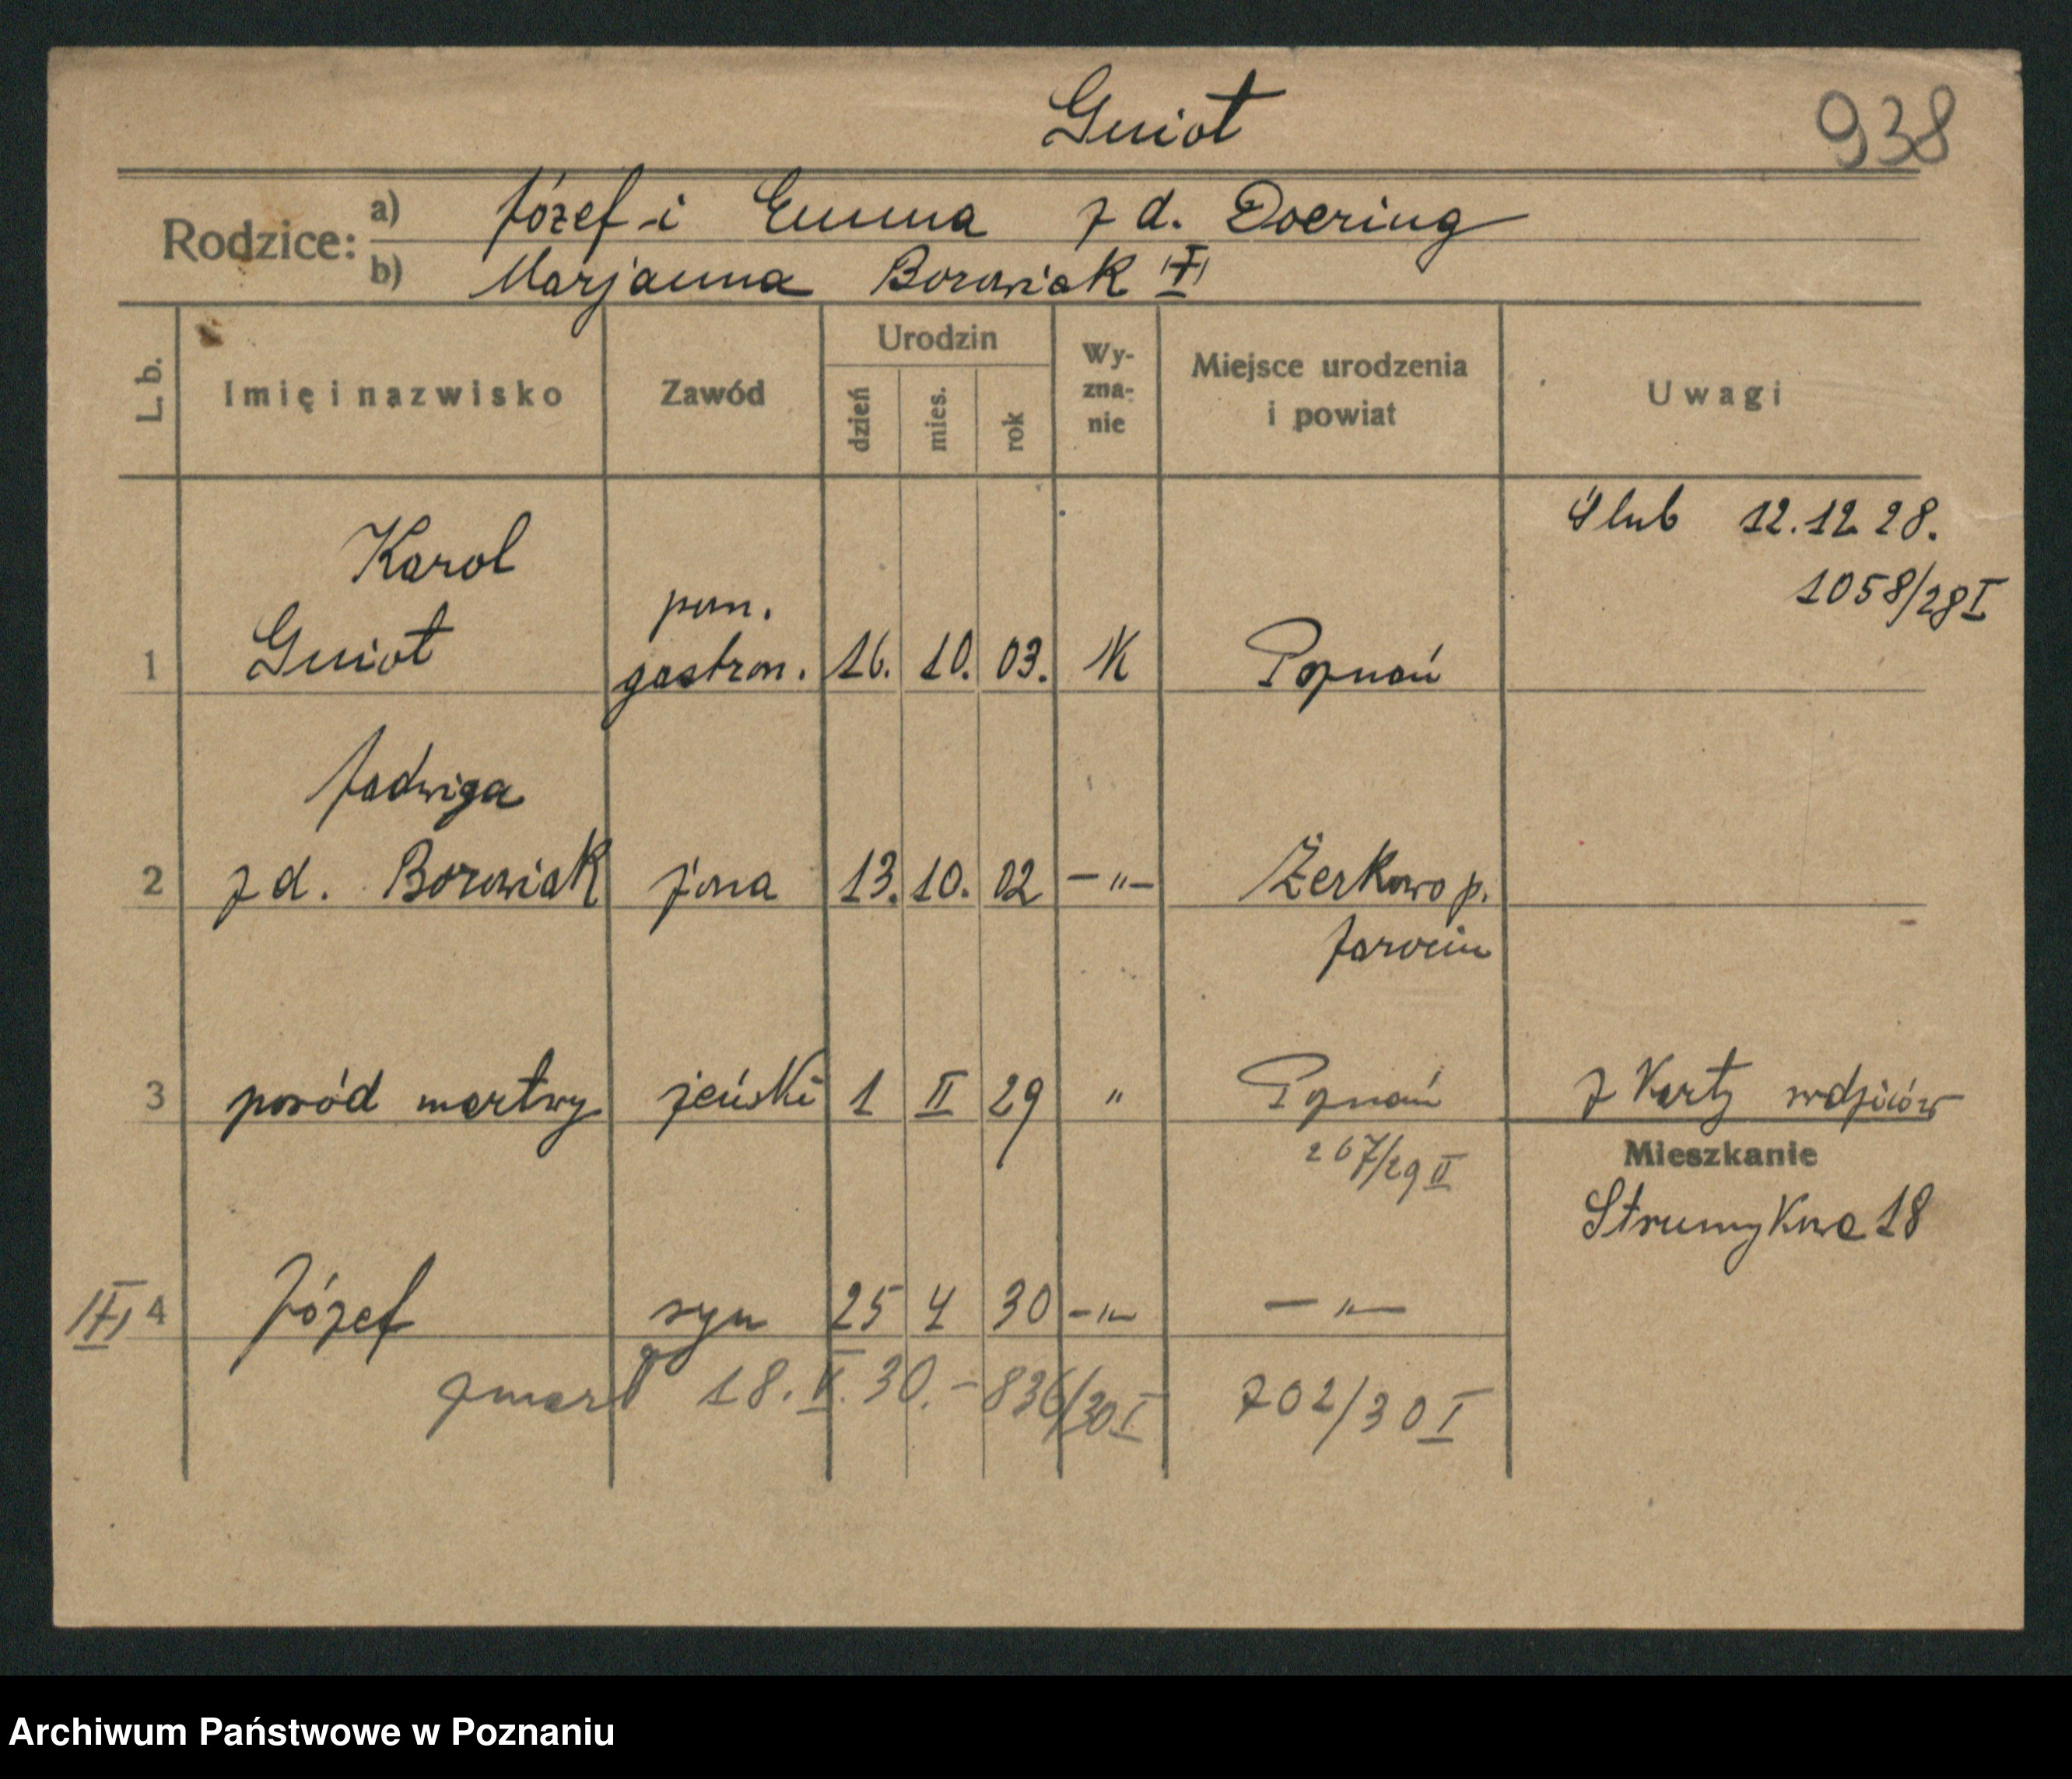 Gniot
938
Rodzice: a) Józef i Emma z d. Doering
b) Marjanna Borowiak
L. b. Imię i nazwisko Zawód Urodzin dzień mies. rok Wyznanie Miejsce urodzenia i powiat Uwagi
Ślub 12.12 28.
1058/28 I
Karol pom.
1 Gniot gastron. 16. 10. 03. K Poznań
Jadwiga
2 z d. Borowiak żona 13. 10. 02 —"— Żerkowo p.
Jarocin
3 poród martwy żeński 1 II 29 " Poznań z Karty rodziców
267/29 II
Mieszkanie
Strumykowa 18
4 Józef syn 25 4 30 —"— —"—
zmarł 18. V. 30. – 836/30 I 702/30 I
Archiwum Państwowe w Poznaniu